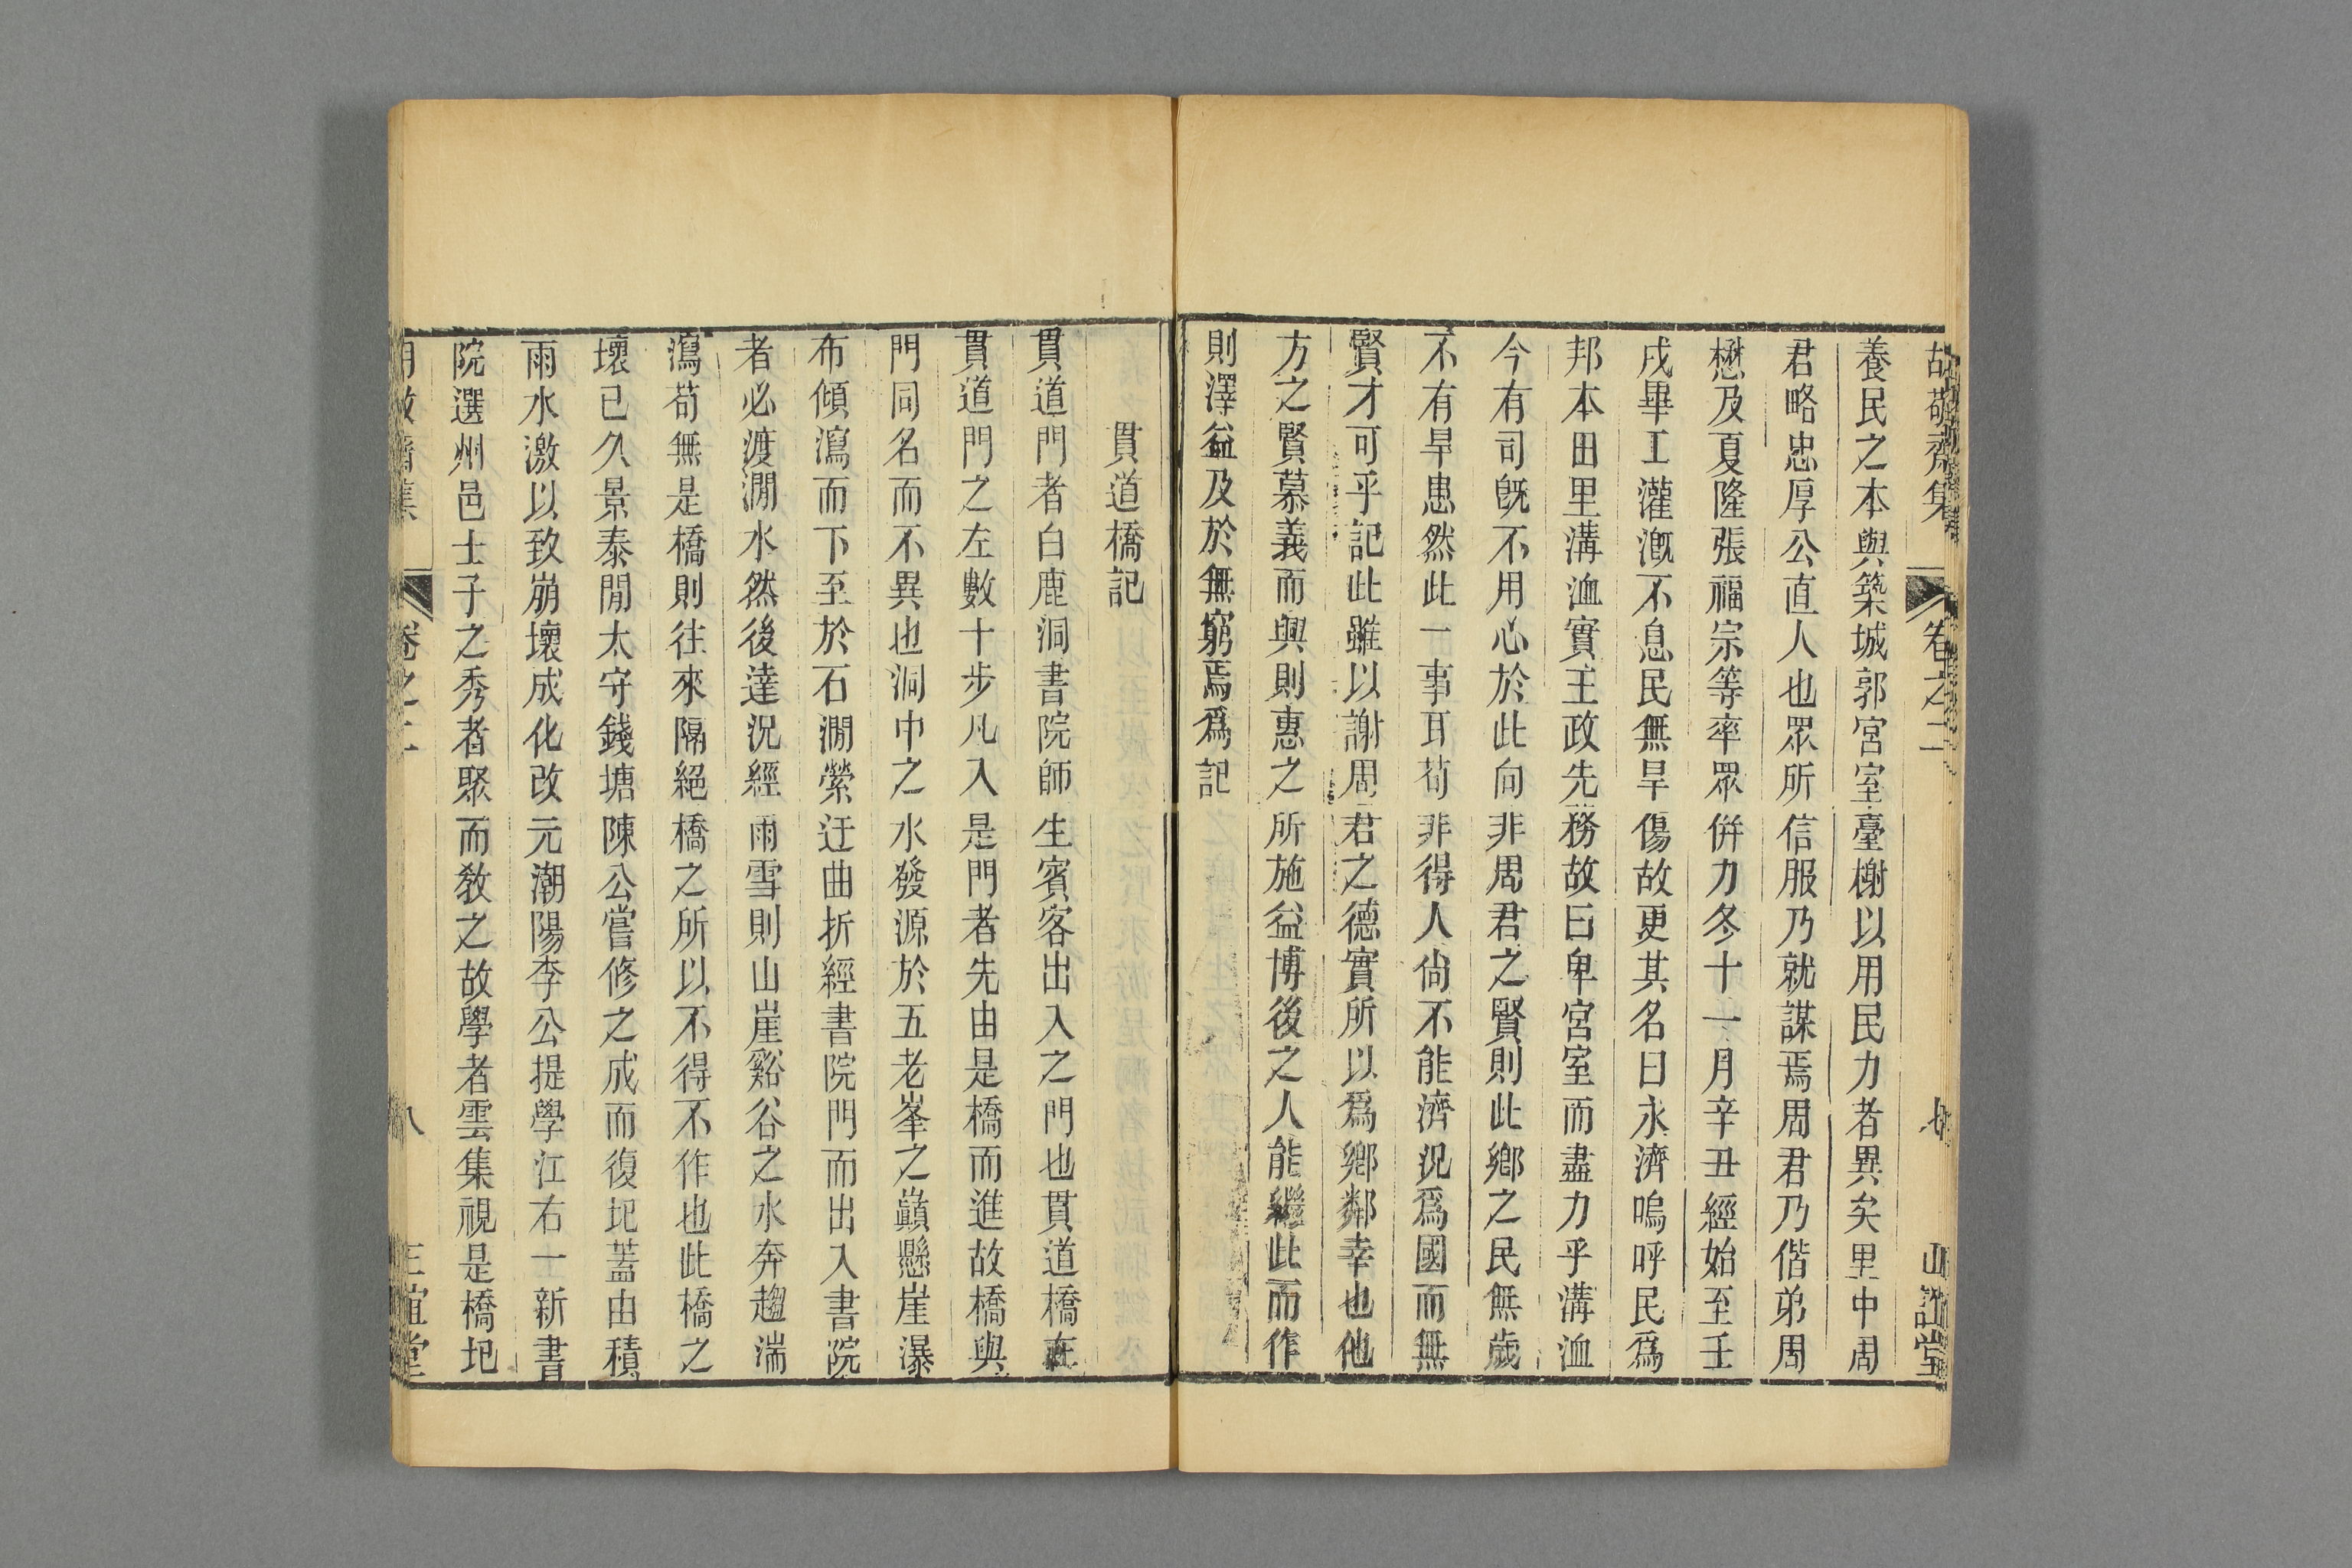 敬齋集 卷之二 七 正誼堂
養民之本與築城郭宮室臺榭以用民力者異矣里中周
君略忠厚公直人也眾所信服乃就謀焉周君乃偕弟周
懋及夏隆張福宗等率眾併力冬十一月辛丑經始至壬
戌畢工灌漑不息民無旱傷故更其名曰永濟嗚呼民爲
邦本田里溝洫實王政先務故曰卑宮室而盡力乎溝洫
今有司旣不用心於此向非周君之賢則此鄉之民無歲
不有旱患然此一事耳苟非得人尙不能濟況爲國而無
賢才可乎記此雖以謝周君之德實所以爲鄉鄰幸也他
方之賢慕義而興則惠之所施益博後之人能繼此而作
則澤益及於無窮焉爲記
貫道橋記
貫道門者白鹿洞書院師生賓客出入之門也貫道橋在
貫道門之左數十步凡入是門者先由是橋而進故橋與
門同名而不異也洞中之水發源於五老峯之巔懸崖瀑
布傾瀉而下至於石澗縈迂曲折經書院門而出入書院
者必渡澗水然後達況經雨雪則山崖谿谷之水奔趨湍
瀉苟無是橋則往來隔絕橋之所以不得不作也此橋之
壞已久景泰閒太守錢塘陳公嘗修之成而復圮蓋由積
雨水激以致崩壞成化改元潮陽李公提學江右一新書
院選州邑士子之秀者聚而敎之故學者雲集視是橋圯
胡敬齋集 卷之二 八 正誼堂